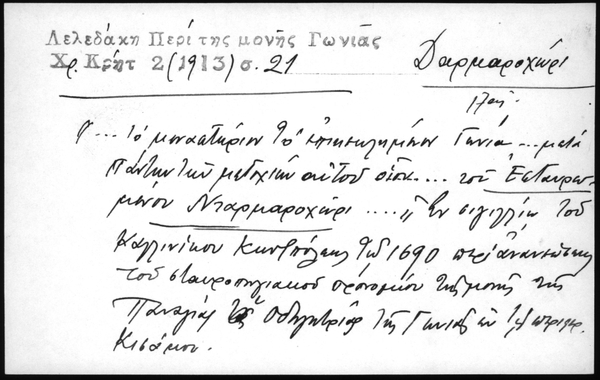 Λελεδάκη Περί της μονῆς Γωνιᾶς
Χρ. Κρήτ 2 (1913) σ. 21
Δαρμαροχώρι
17ος.
"... τὸ μοναστήριον τὸ ἐπικεκλημένον Γωνιά ... μετά
πάντων τῶν μετοχίων αὐτοῦ οἷον .... τοῦ Ἐσταυρω-
μένου Νταρμαροχώρι ...." Ἐν σιγιλλίῳ τοῦ
Καλλινίκου Κωνστπόλεως τοῦ 1690 περὶ ἀνανεώσεως
τοῦ σταυροπηγιακοῦ προνομίου τῆς μονῆς τῆς
Παναγίας τῆς Ὁδηγητρίας τῆς Γωνιᾶς ἐν τῇ περιφερ.
Κισάμου.